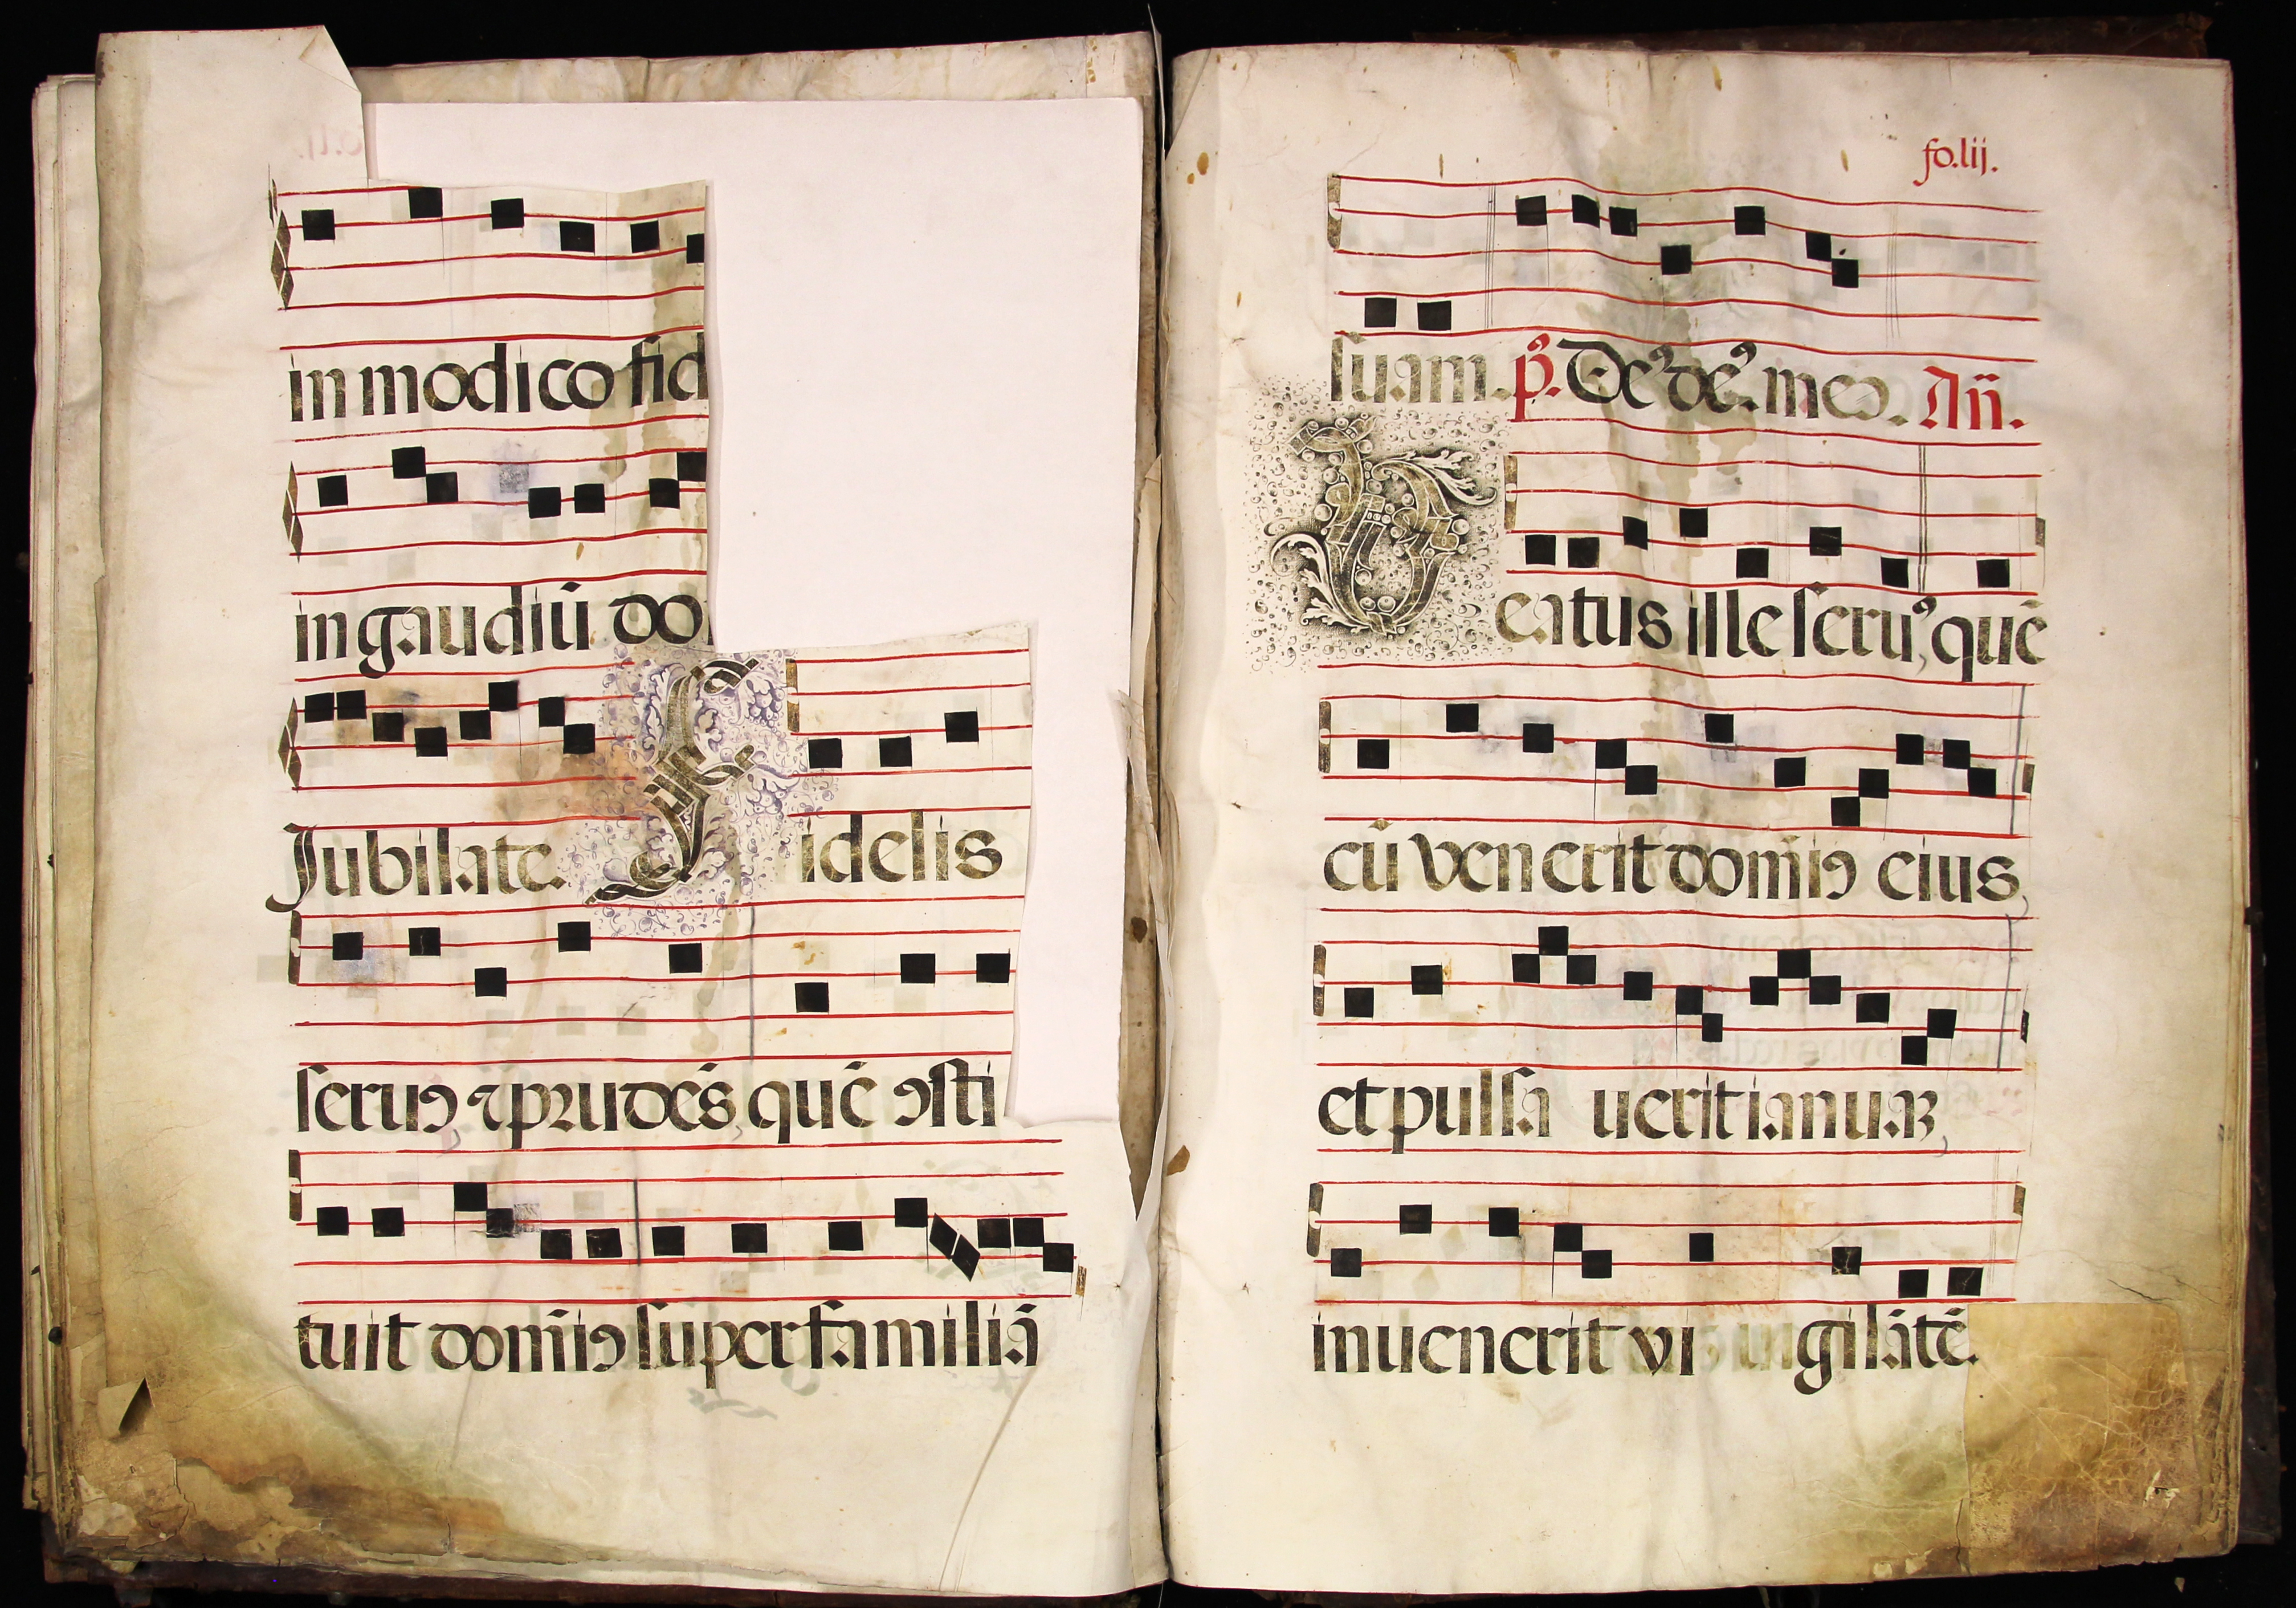 in modico fid
in gaudiū do
Jubilate. Fidelis
seruꝰ ⁊ prudēs quē ꝯsti
tuit domīꝰ super familiā
fo. lij.
suam. p̄s. Deꝰ deꝰ. meꝰ. An̄.
Beatus ille seruꝰ, quē
cū venerit domīꝰ eius
et pulsauerit ianuaꝫ
inuenerit vigilātē.